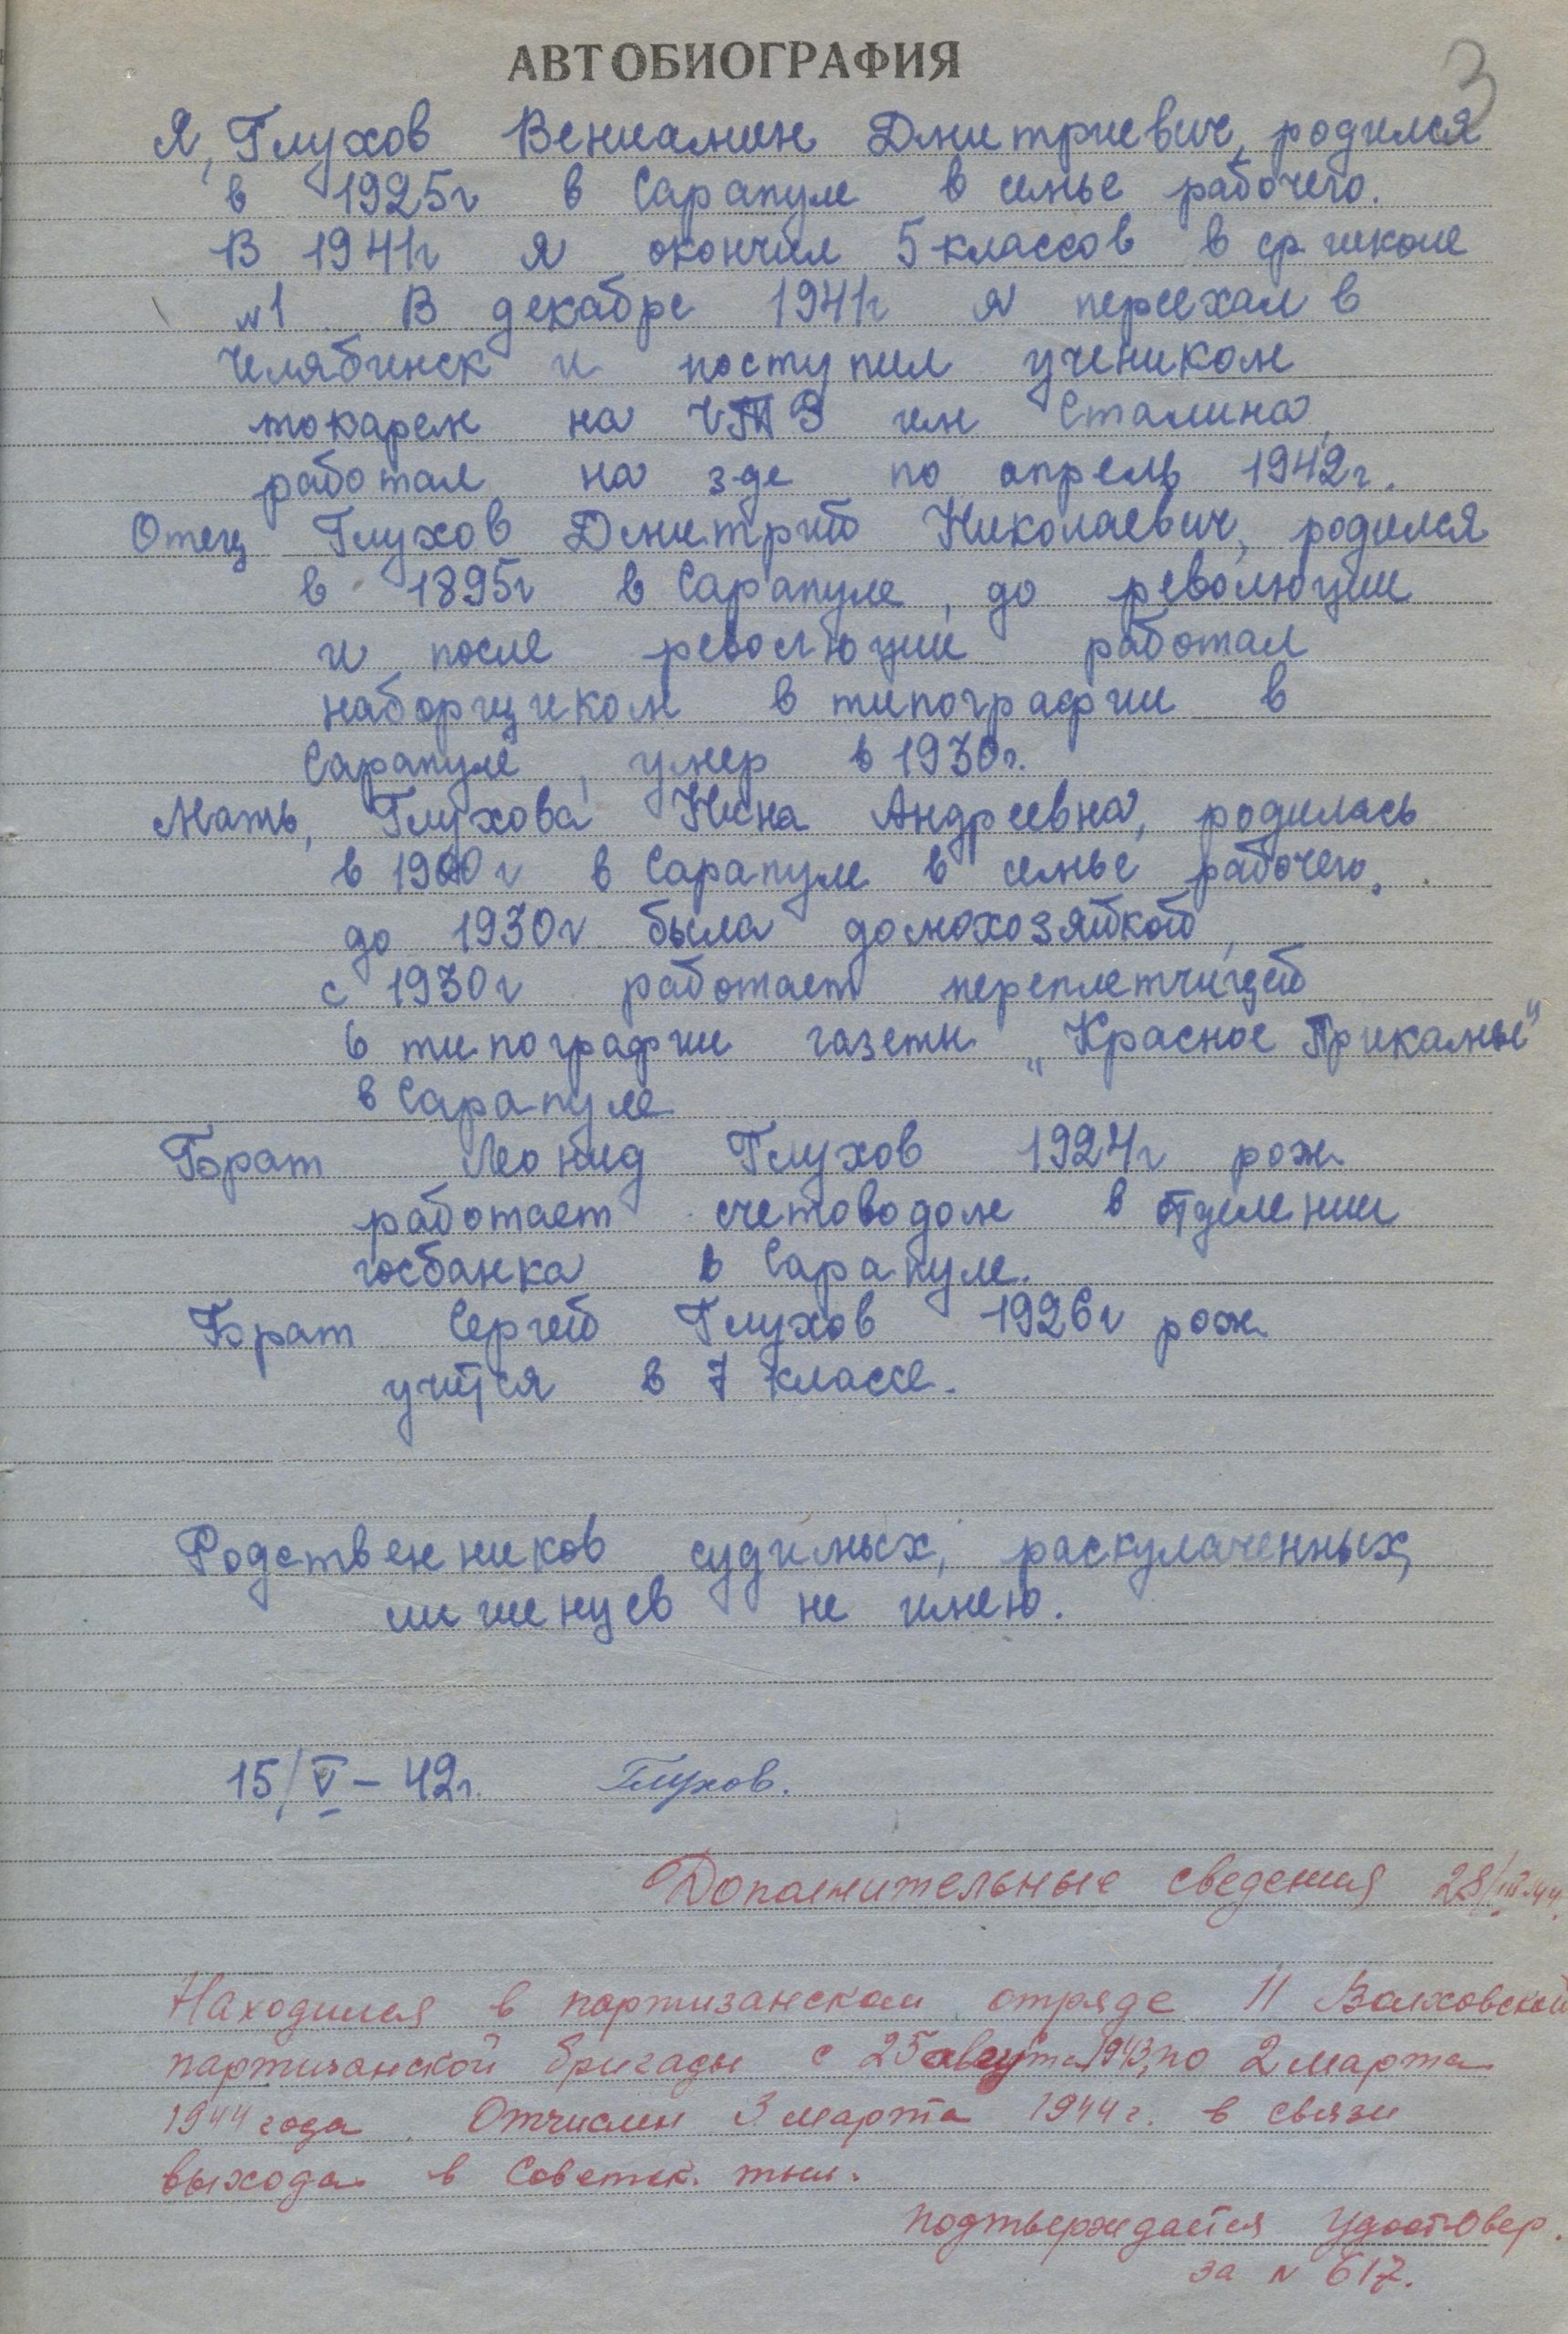 3
АВТОБИОГРАФИЯ
Я, Глухов Вениамин Дмитриевич, родился
в 1925г в Сарапуле в семье рабочего.
В 1941г я окончил 5 классов в ср школе
№1 В декабре 1941г я переехал в
Челябинск и поступил учеником
токарем на ЧТЗ им Сталина,
работал на з-де по апрель 1942г.
Отец Глухов Дмитрий Николаевич, родился
в 1895г в Сарапуле, до революции
и после революции работал
наборщиком в типографии в
Сарапуле, умер в 1930г.
Мать, Глухова Нина Андреевна, родилась
в 1900г в Сарапуле в семье рабочего,
до 1930г была домохозяйкой,
с 1930г работает переплетчицей
в типографии газеты „Красное Прикамье"
в Сарапуле
Брат Леонид Глухов 1924г рож
работает счетоводом в отделении
госбанка в Сарапуле.
Брат Сергей Глухов 1926г рож
учится в 7 классе.
Родственников судимых, раскулаченных,
лишенцев не имею.
15/V – 42г. Глухов.
Дополнительные сведения 28/III-44
Находился в партизанском отряде 11 Волховской
партизанской бригады с 25 августа 1943, по 2 марта
1944 года. Отчислен 3 марта 1944 г. в связи
выхода в Советск. тыл.
подтверждается удостовер.
за № 617.